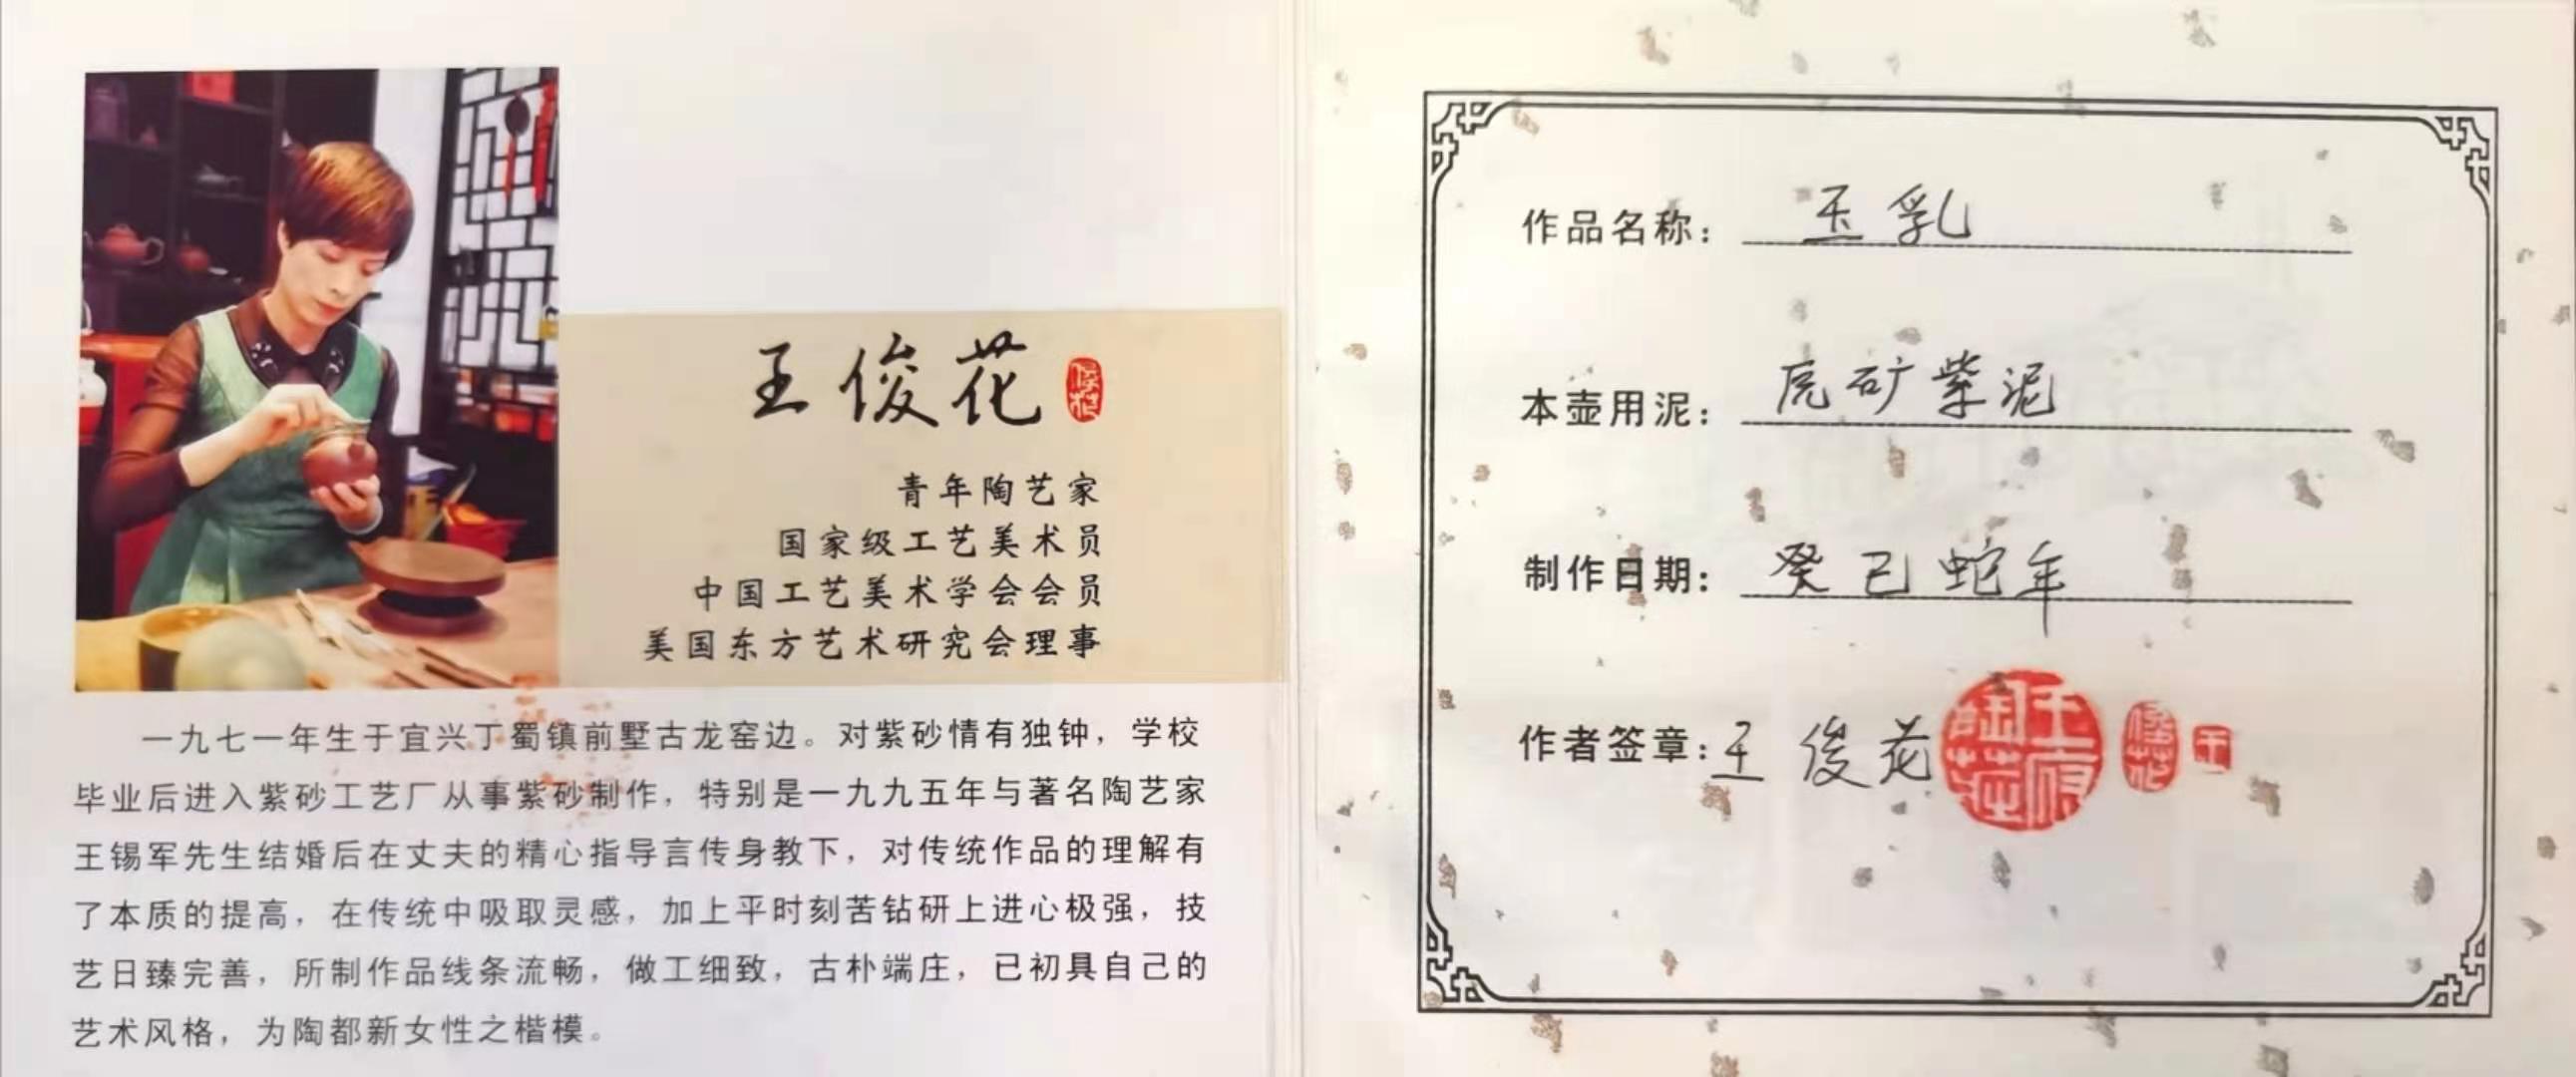 王俊花
青年陶艺家
国家级工艺美术员
中国工艺美术学会会员
美国东方艺术研究会理事
一九七一年生于宜兴丁蜀镇前墅古龙窑边。对紫砂情有独钟，学校
毕业后进入紫砂工艺厂从事紫砂制作，特别是一九九五年与著名陶艺家
王锡军先生结婚后在丈夫的精心指导言传身教下，对传统作品的理解有
了本质的提高，在传统中吸取灵感，加上平时刻苦钻研上进心极强，技
艺日臻完善，所制作品线条流畅，做工细致，古朴端庄，已初具自己的
艺术风格，为陶都新女性之楷模。
作品名称： 玉乳
本壶用泥： 矿紫泥
制作日期： 癸巳蛇年
作者签章： 王俊花